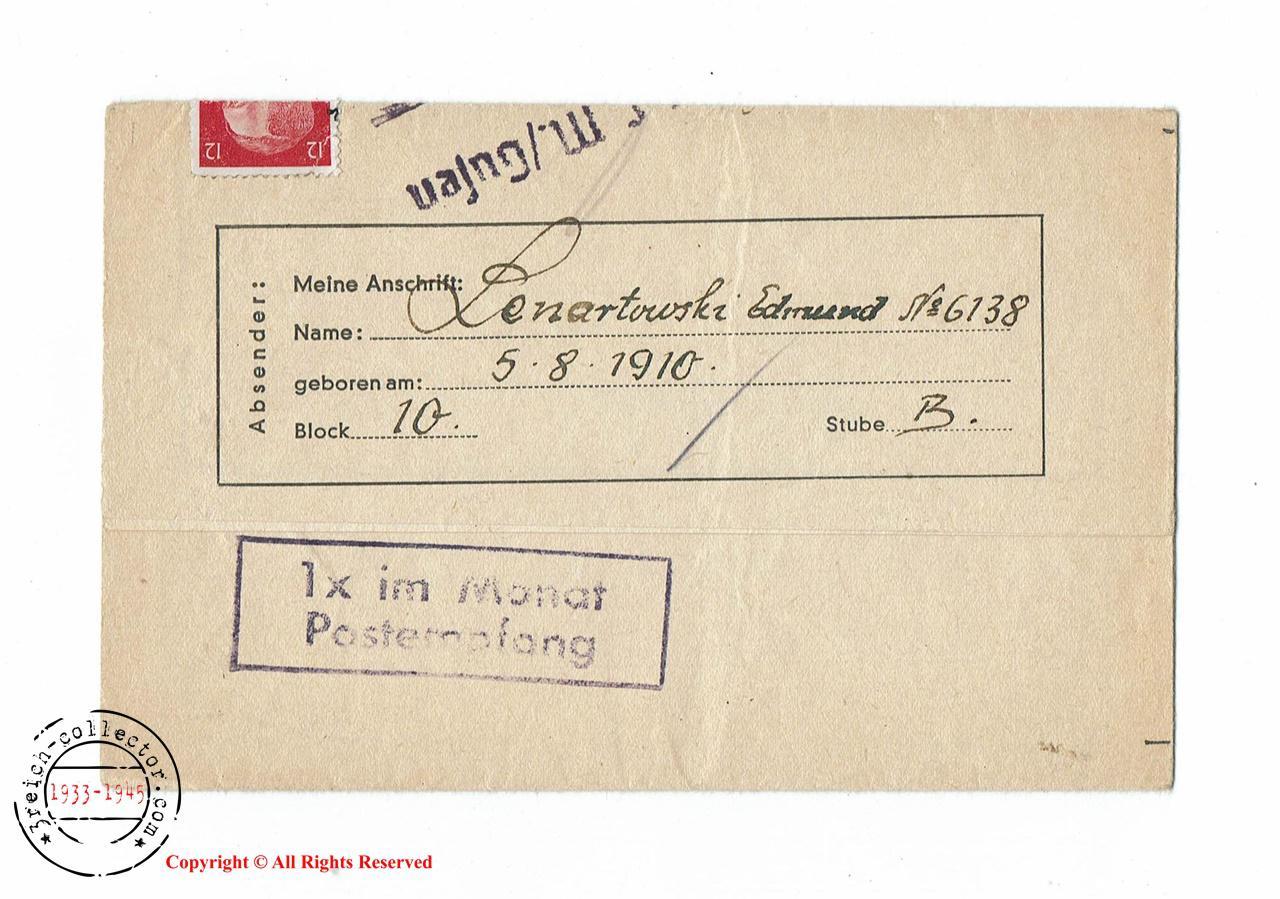 12 12
M./Gusen
Absender:
Meine Anschrift:
Name: Lenartowski Edmund № 6138
geboren am: 5.8.1910.
Block 10.
Stube B.
1x im Monat
Postempfang
3reich-collector.com
1933-1945
Copyright © All Rights Reserved